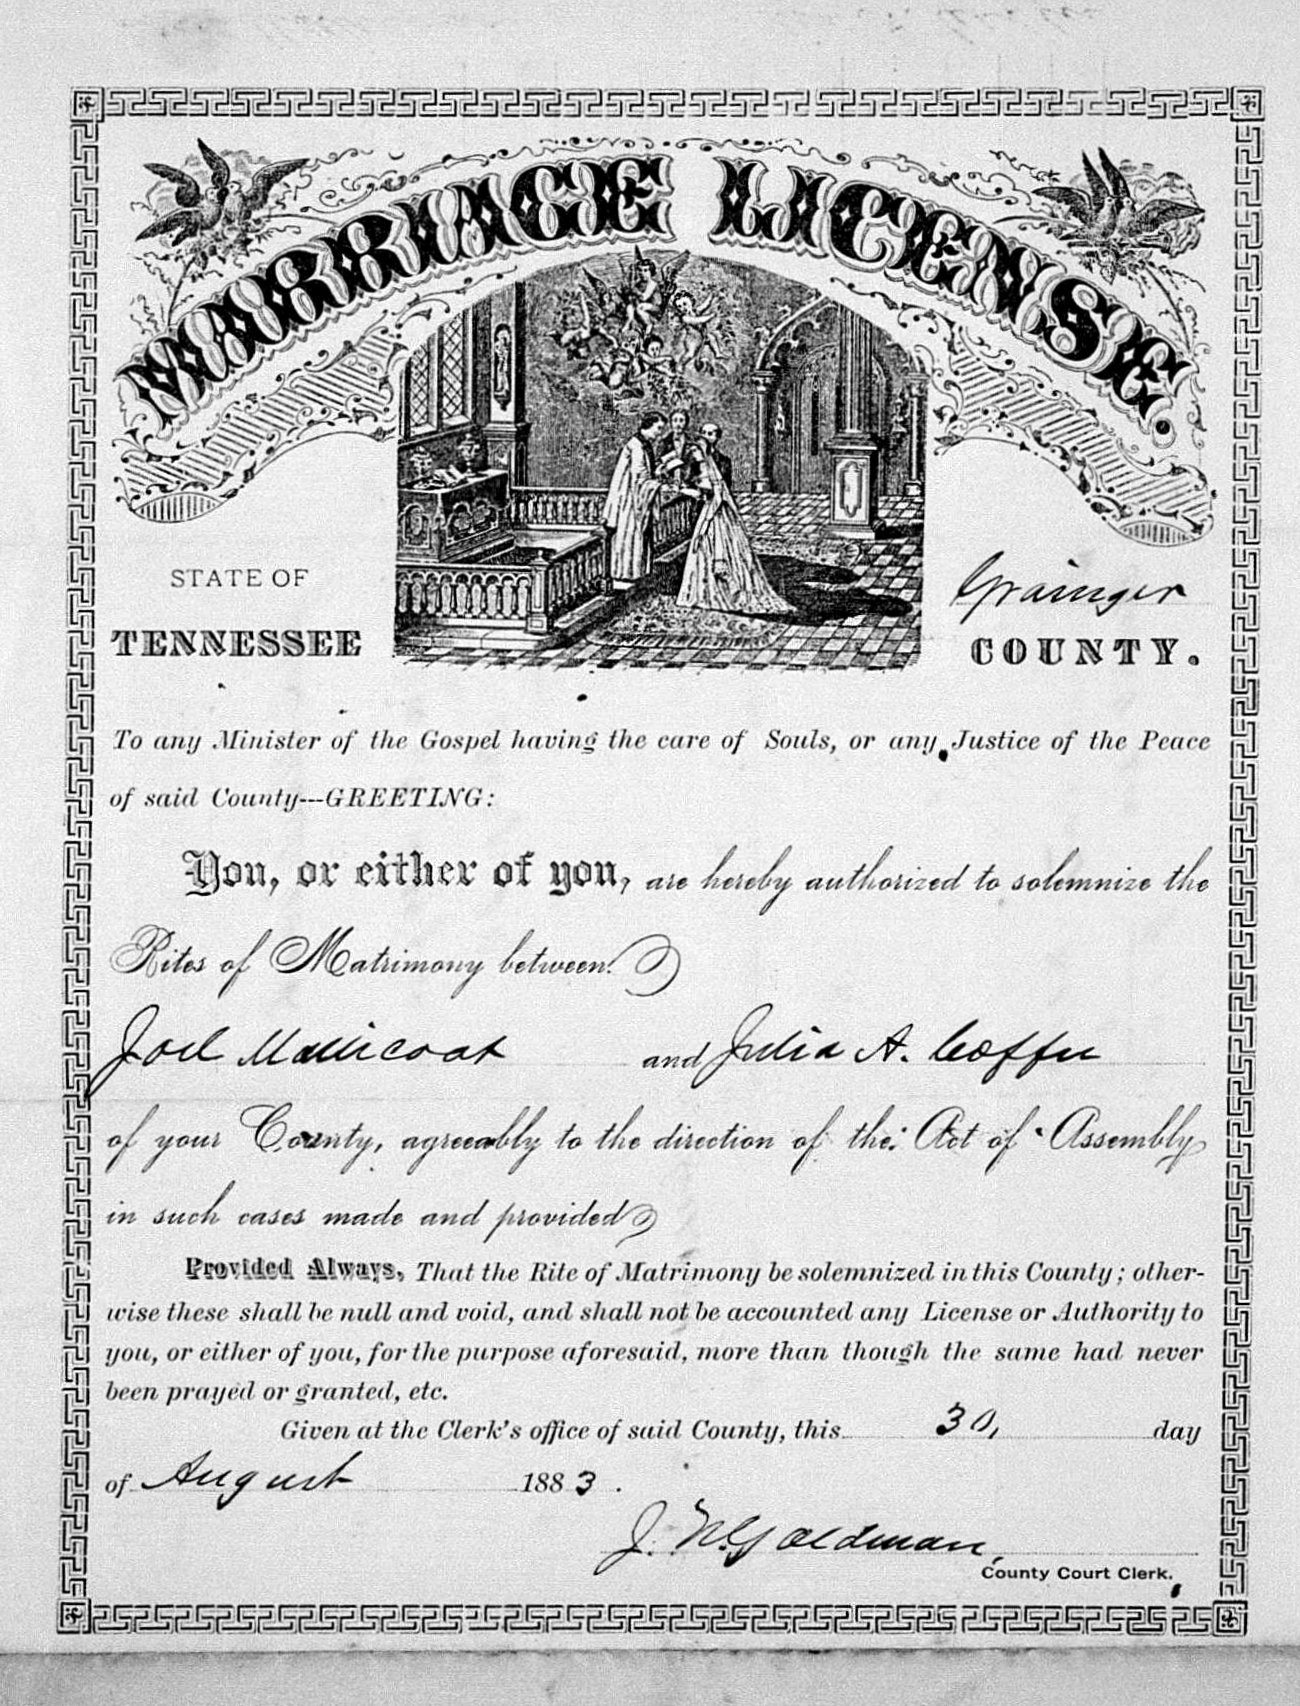 MARRIAGE LICENSE.
STATE OF
TENNESSEE
Grainger
COUNTY.
To any Minister of the Gospel having the care of Souls, or any Justice of the Peace
of said County---GREETING:
You, or either of you, are hereby authorized to solemnize the
Rites of Matrimony between
Joel Mallicoat and Julia A. Coffee
of your County, agreeably to the direction of the Act of Assembly
in such cases made and provided
Provided Always, That the Rite of Matrimony be solemnized in this County; other-
wise these shall be null and void, and shall not be accounted any License or Authority to
you, or either of you, for the purpose aforesaid, more than though the same had never
been prayed or granted, etc.
Given at the Clerk's office of said County, this 30, day
of August 1883.
J. N. Goldman,
County Court Clerk.